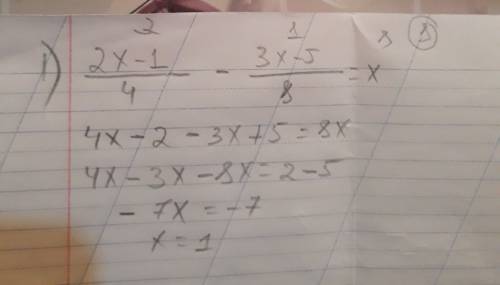 2 1 8 ①
1) (2x-1)/4 - (3x-5)/8 = x
4x-2-3x+5=8x
4x-3x-8x=2-5
-7x=-7
x=1